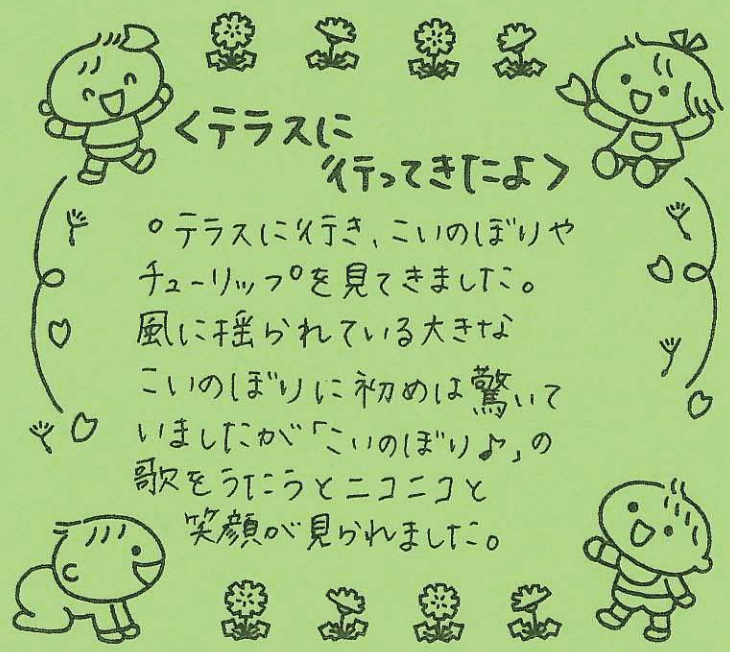 <テラスに
行ってきたよ>
○テラスに行き、こいのぼりや
チューリップを見てきました。
風に揺られている大きな
こいのぼりに初めは驚いて
いましたが「こいのぼり♪」の
歌をうたうとニコニコと
笑顔が見られました。